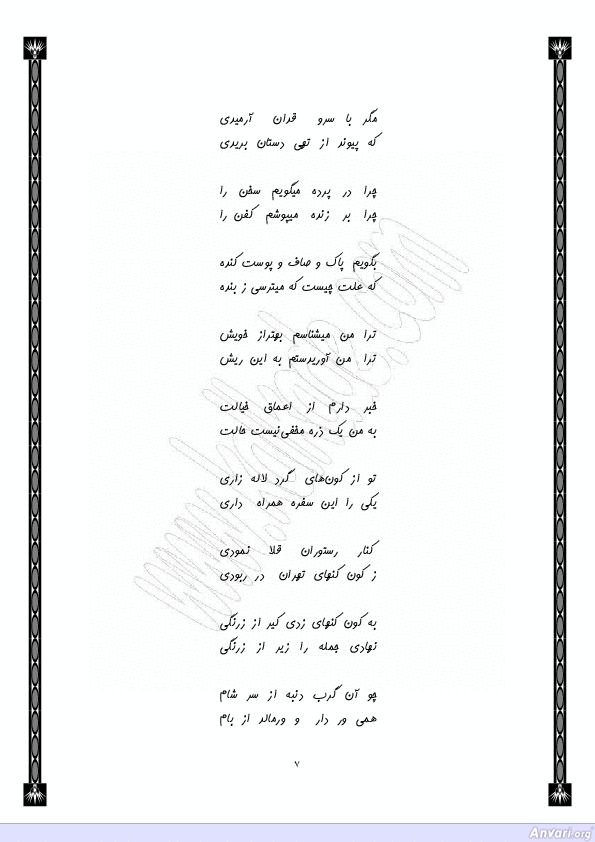 مگر با سرو قدان آرمیدی
که پیوند از تهی دستان بریدی
چرا در پرده میگویم سخن را
چرا بر زنده میپوشم کفن را
بگویم پاک و صاف و پوست کنده
که علت چیست که میترسی ز بنده
ترا من میشناسم بهتراز خویش
ترا من آوریدستم به این ریش
خبر دارم از اعماق خیالت
به من یک ذره مخفی نیست حالت
تو از کون‌های گرد لاله زاری
یکی را این سفره همراه داری
کنار رستوران قلا نمودی
ز کون کنهای تهران در ربودی
به کون کنهای زدی کیر از زرنگی
نهادی جمله را زیر از زرنگی
چو آن گرب دنبه از سر شام
همی ور دار و ورمالد از بام
۷
Anvari.org